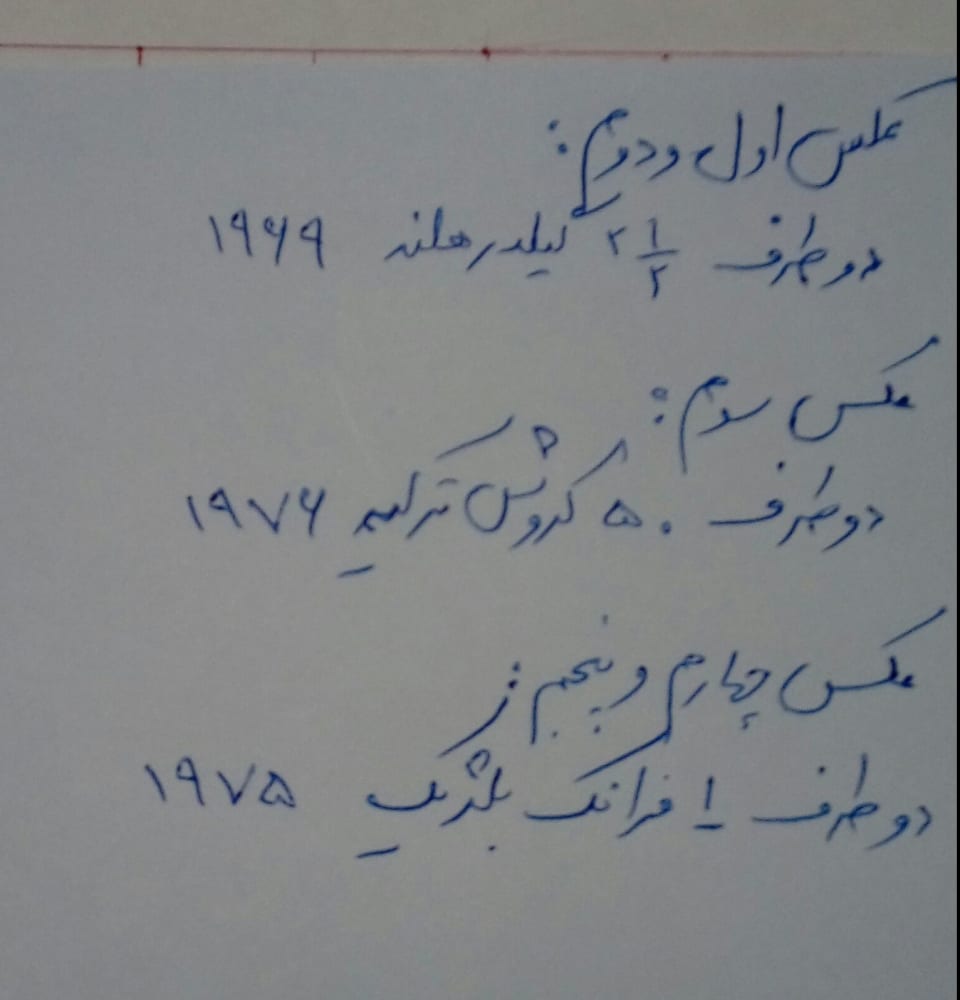 عکس اول و دوم:
دو طرف ۲ ۱/۲ گیلدر هلند ۱۹۶۹
عکس سوم:
دو طرف ۵۰ کروش ترکیه ۱۹۷۶
عکس چهارم و پنجم:
دو طرف ۱ فرانک بلژیک ۱۹۷۵